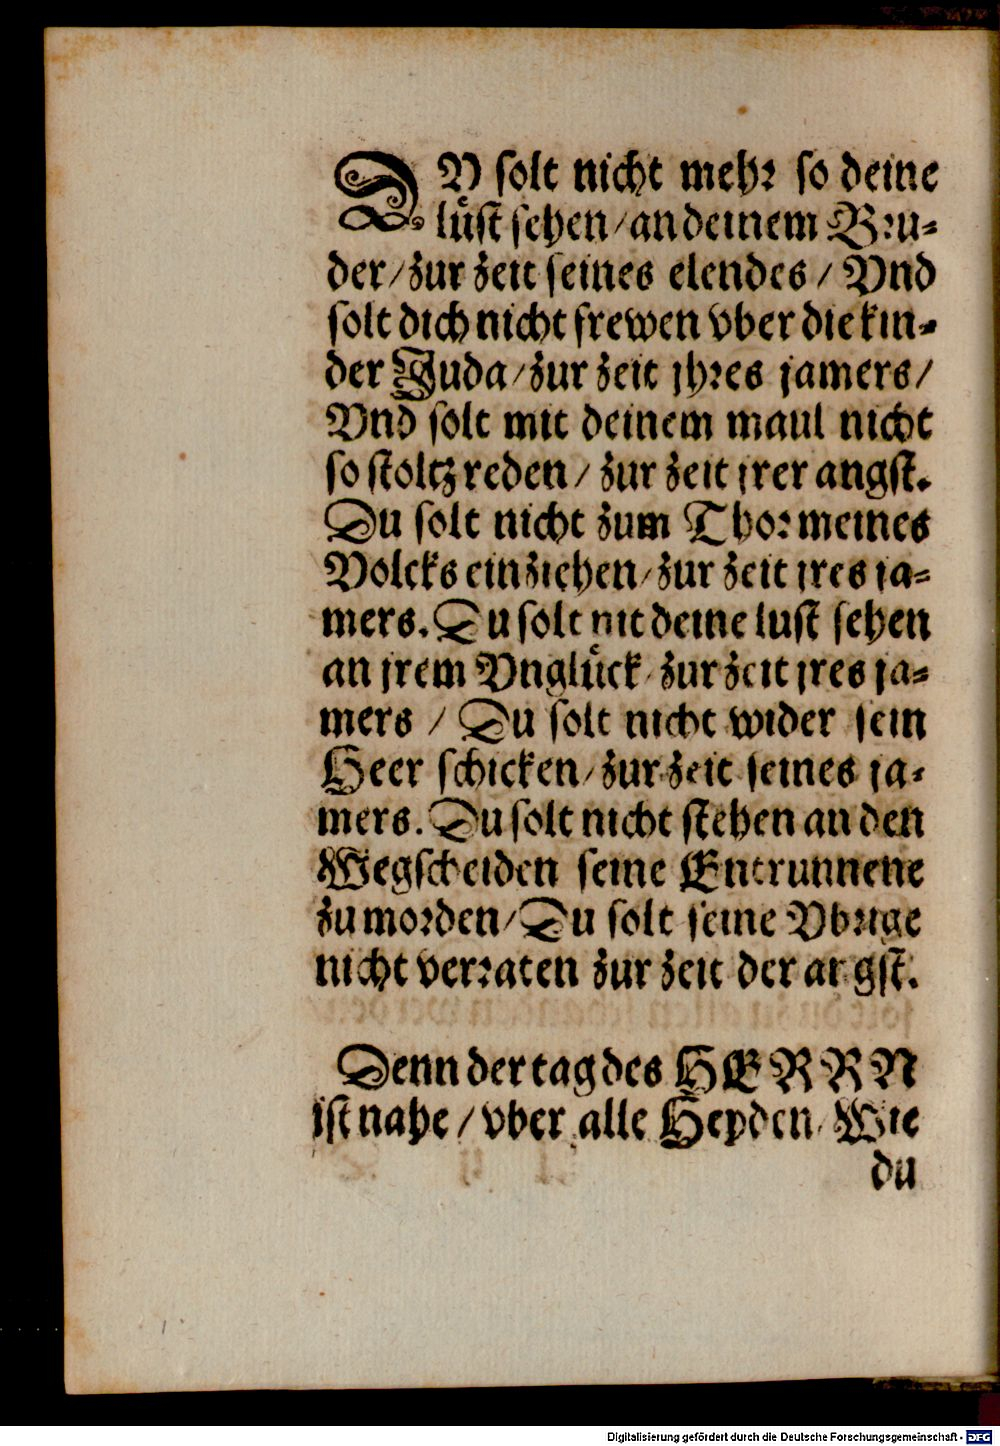 DV solt nicht mehr so deine
lüst sehen / an deinem Bru-
der / zur zeit seines elendes / Vnd
solt dich nicht frewen vber die kin-
der Juda / zur zeit jhres jamers /
Vnd solt mit deinem maul nicht
so stoltz reden / zur zeit jrer angst.
Du solt nicht zum Thor meines
Volcks einziehen / zur zeit jres ja-
mers. Du solt nit deine lust sehen
an jrem Vnglück / zur zeit jres ja-
mers / Du solt nicht wider sein
Heer schicken / zur zeit seines ja-
mers. Du solt nicht stehen an den
Wegscheiden seine Entrunnene
zu morden / Du solt seine Vbrige
nicht verraten zur zeit der angst.
Denn der tag des HERRN
ist nahe / vber alle Heyden / Wie
du
Digitalisierung gefördert durch die Deutsche Forschungsgemeinschaft - DFG